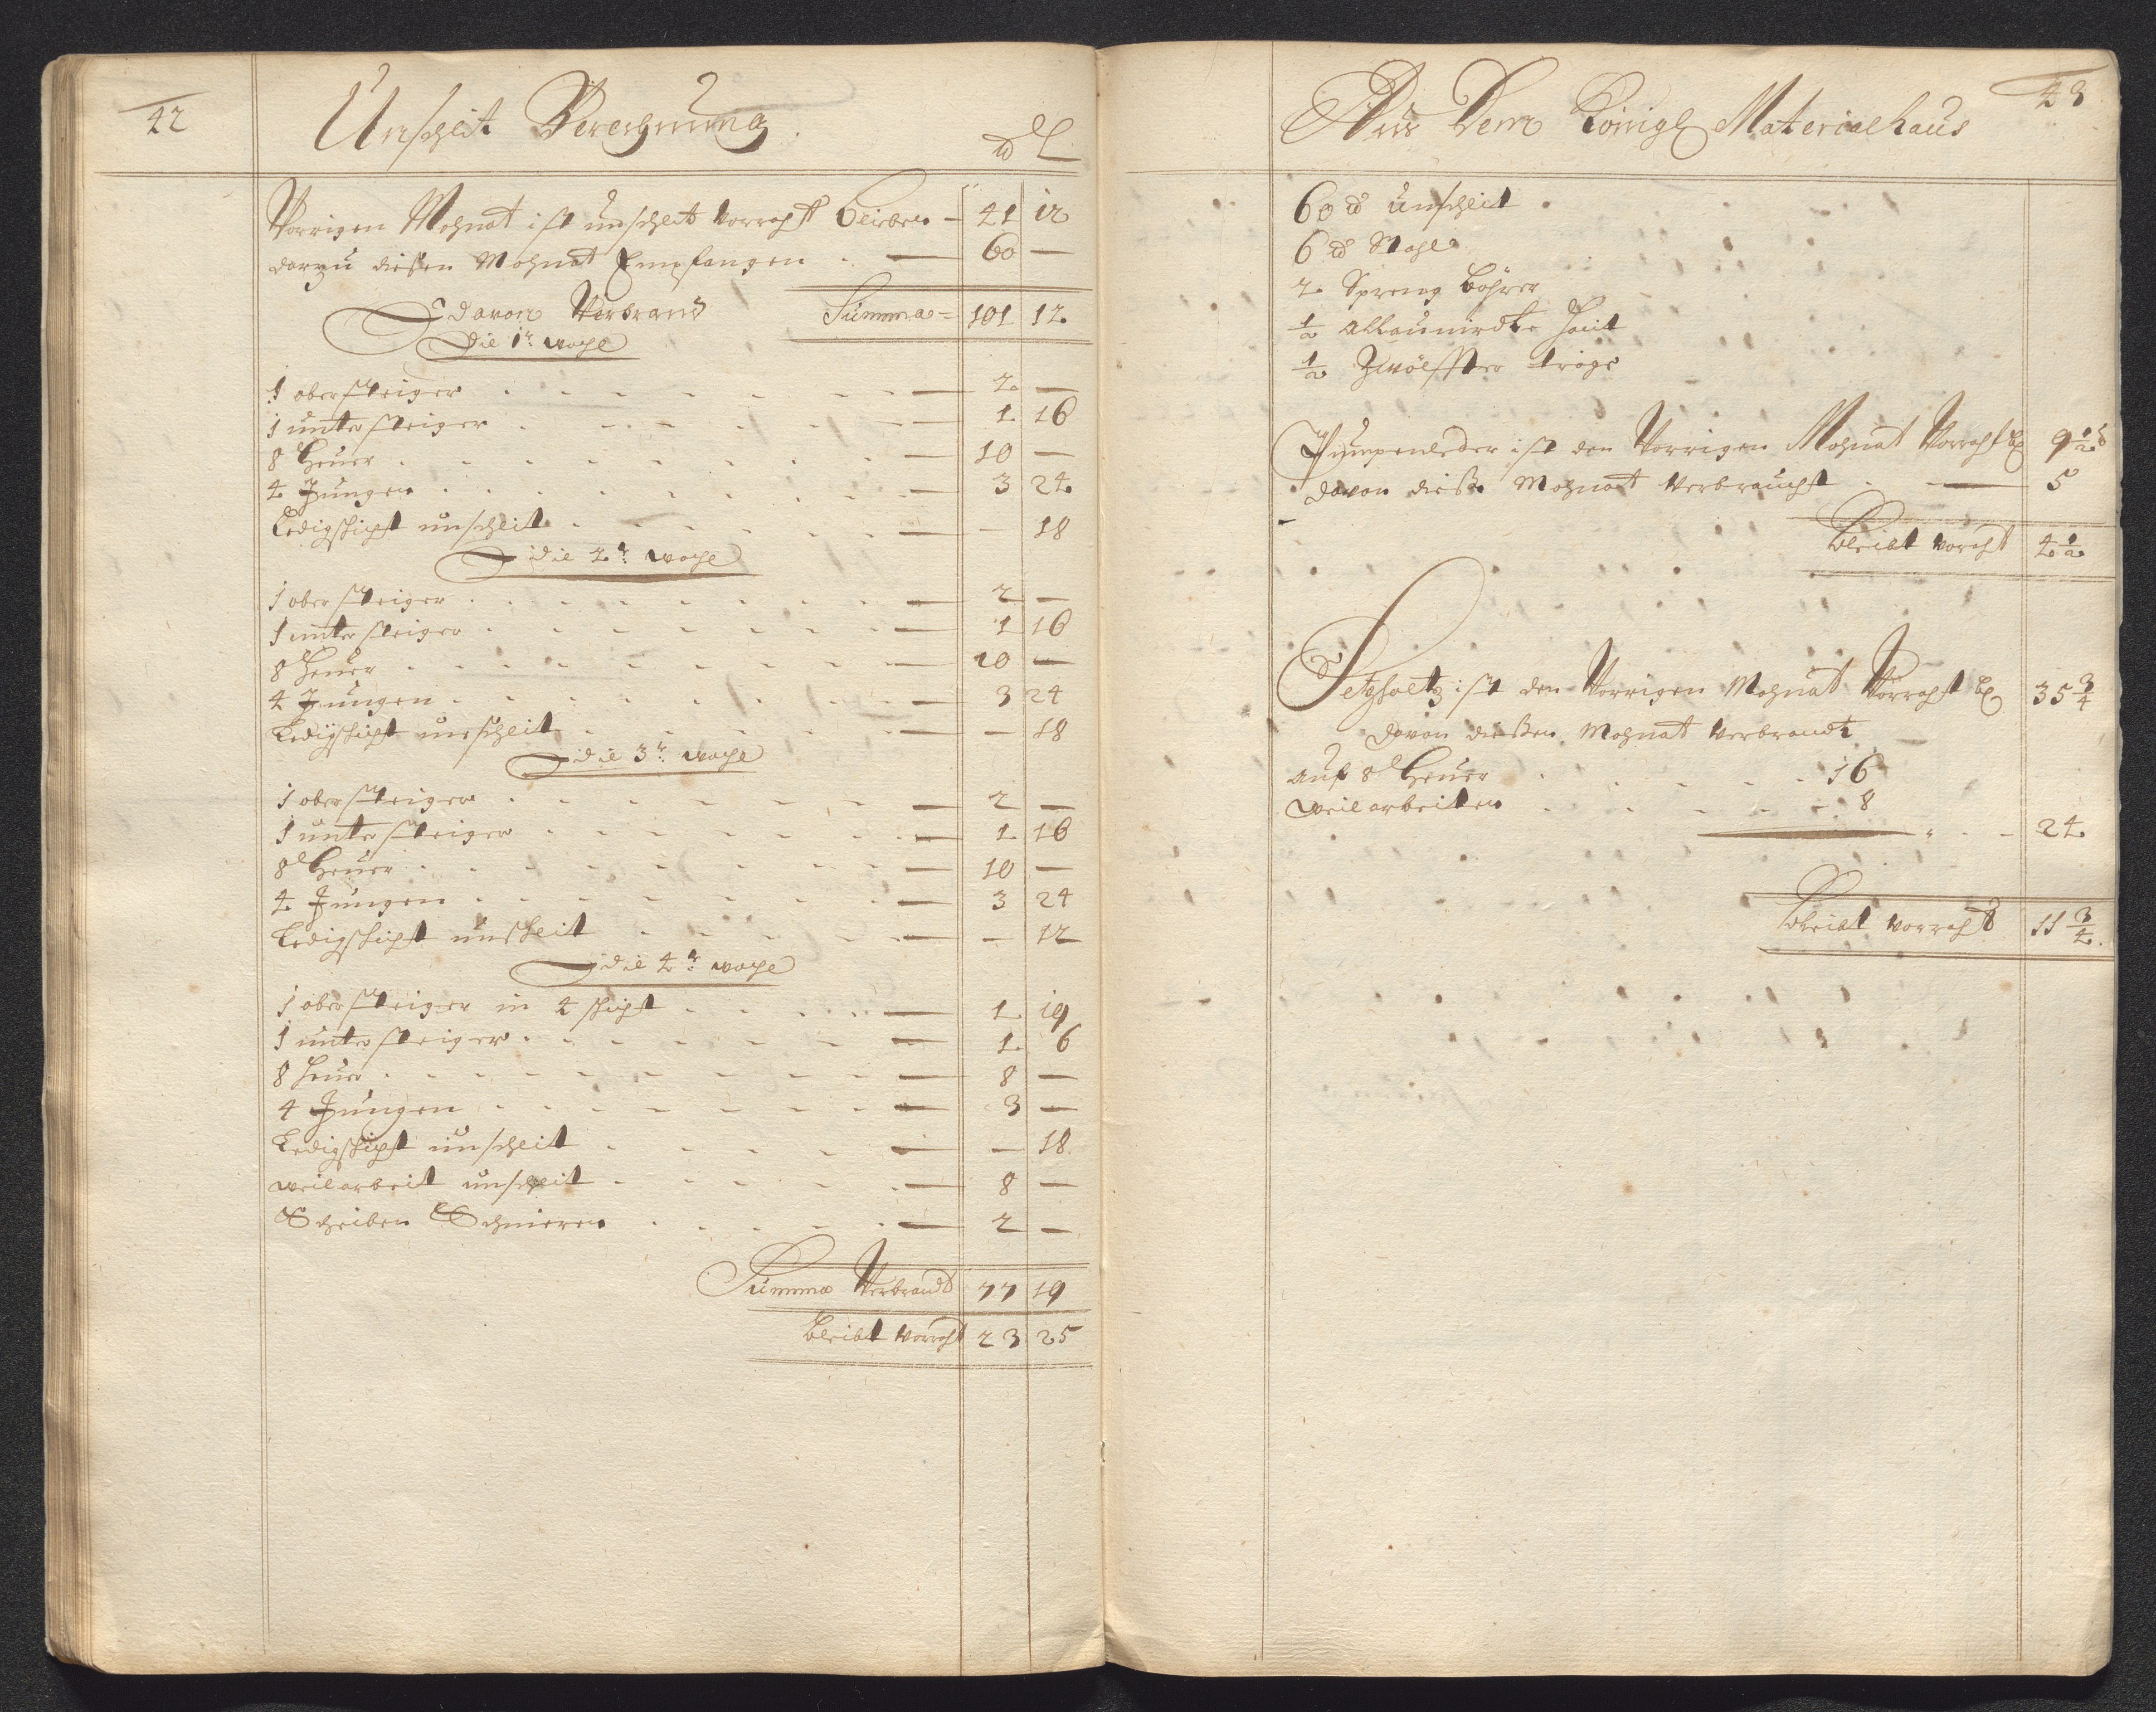 42
Unschlit Berechnung.
℔ L
Vorrigen Mohnat ist unschlit Vorraht bliben – 41 12
darzu diesen Mohnat Empfangen . — 60 —
davon Verbrand Summa = 101 12.
Die 1r. woche
1 obersteiger — 2. —
1 untersteiger — 1. 16
8 Heuer — 10 —
4 Jungen — 3 24
Ledigschicht unschlit — 18
die 2r. woche
1 obersteiger — 2 —
1 untersteiger — 1 16
8 Heuer — 10 —
4 Jungen — 3 24
Ledigschicht unschlit — 18
die 3r. woche
1 obersteiger — 2 —
1 untersteiger — 1. 16
8 Heuer — 10 —
4 Jungen — 3 24
Ledigschicht unschlit — 12
die 4r. woche
1 obersteiger in 4 schicht — 1. 19
1 untersteiger — 1. 6
8 Heuer — 8 —
4 Jungen — 3 —
Ledigschicht unschlit — 18.
weilarbeit unschlit — 8 —
Scheiben Schmieren — 2 —
Summa Verbrandt 77 19
bleibt Vorraht 23 25
43
Aus Dem Königl Materialhaus
60 ℔ unschlit .
6 ℔ Stahl
2. Spreng bohrer
1/2 allaunirdte Haut
1/2 Zwölffter tröge
Pumpenleder ist den Vorrigen Mohnat Vorraht bl 9 1/2 ℔
davon diesse Mohnat Verbraucht — 5
bleibt Voraht 4 1/2
Setzholtz ist den Vorrigen Mohnat Vorraht bl 35 3/4
davon diesen Mohnat Verbrandt
auf 8 Heuer 16
weilarbeiten 8
24.
bleibt Vorraht 11 3/4.